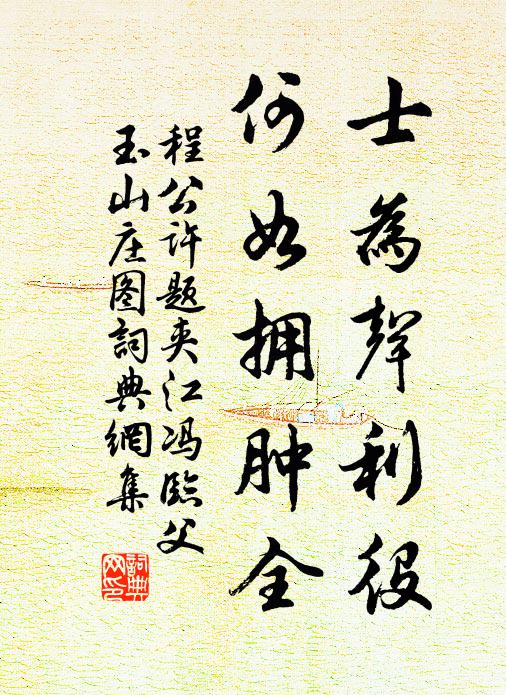 士為聲利役
何如擁肿全
程公许題夹江冯臨父
玉山庄图詞典網集
詞典
网印